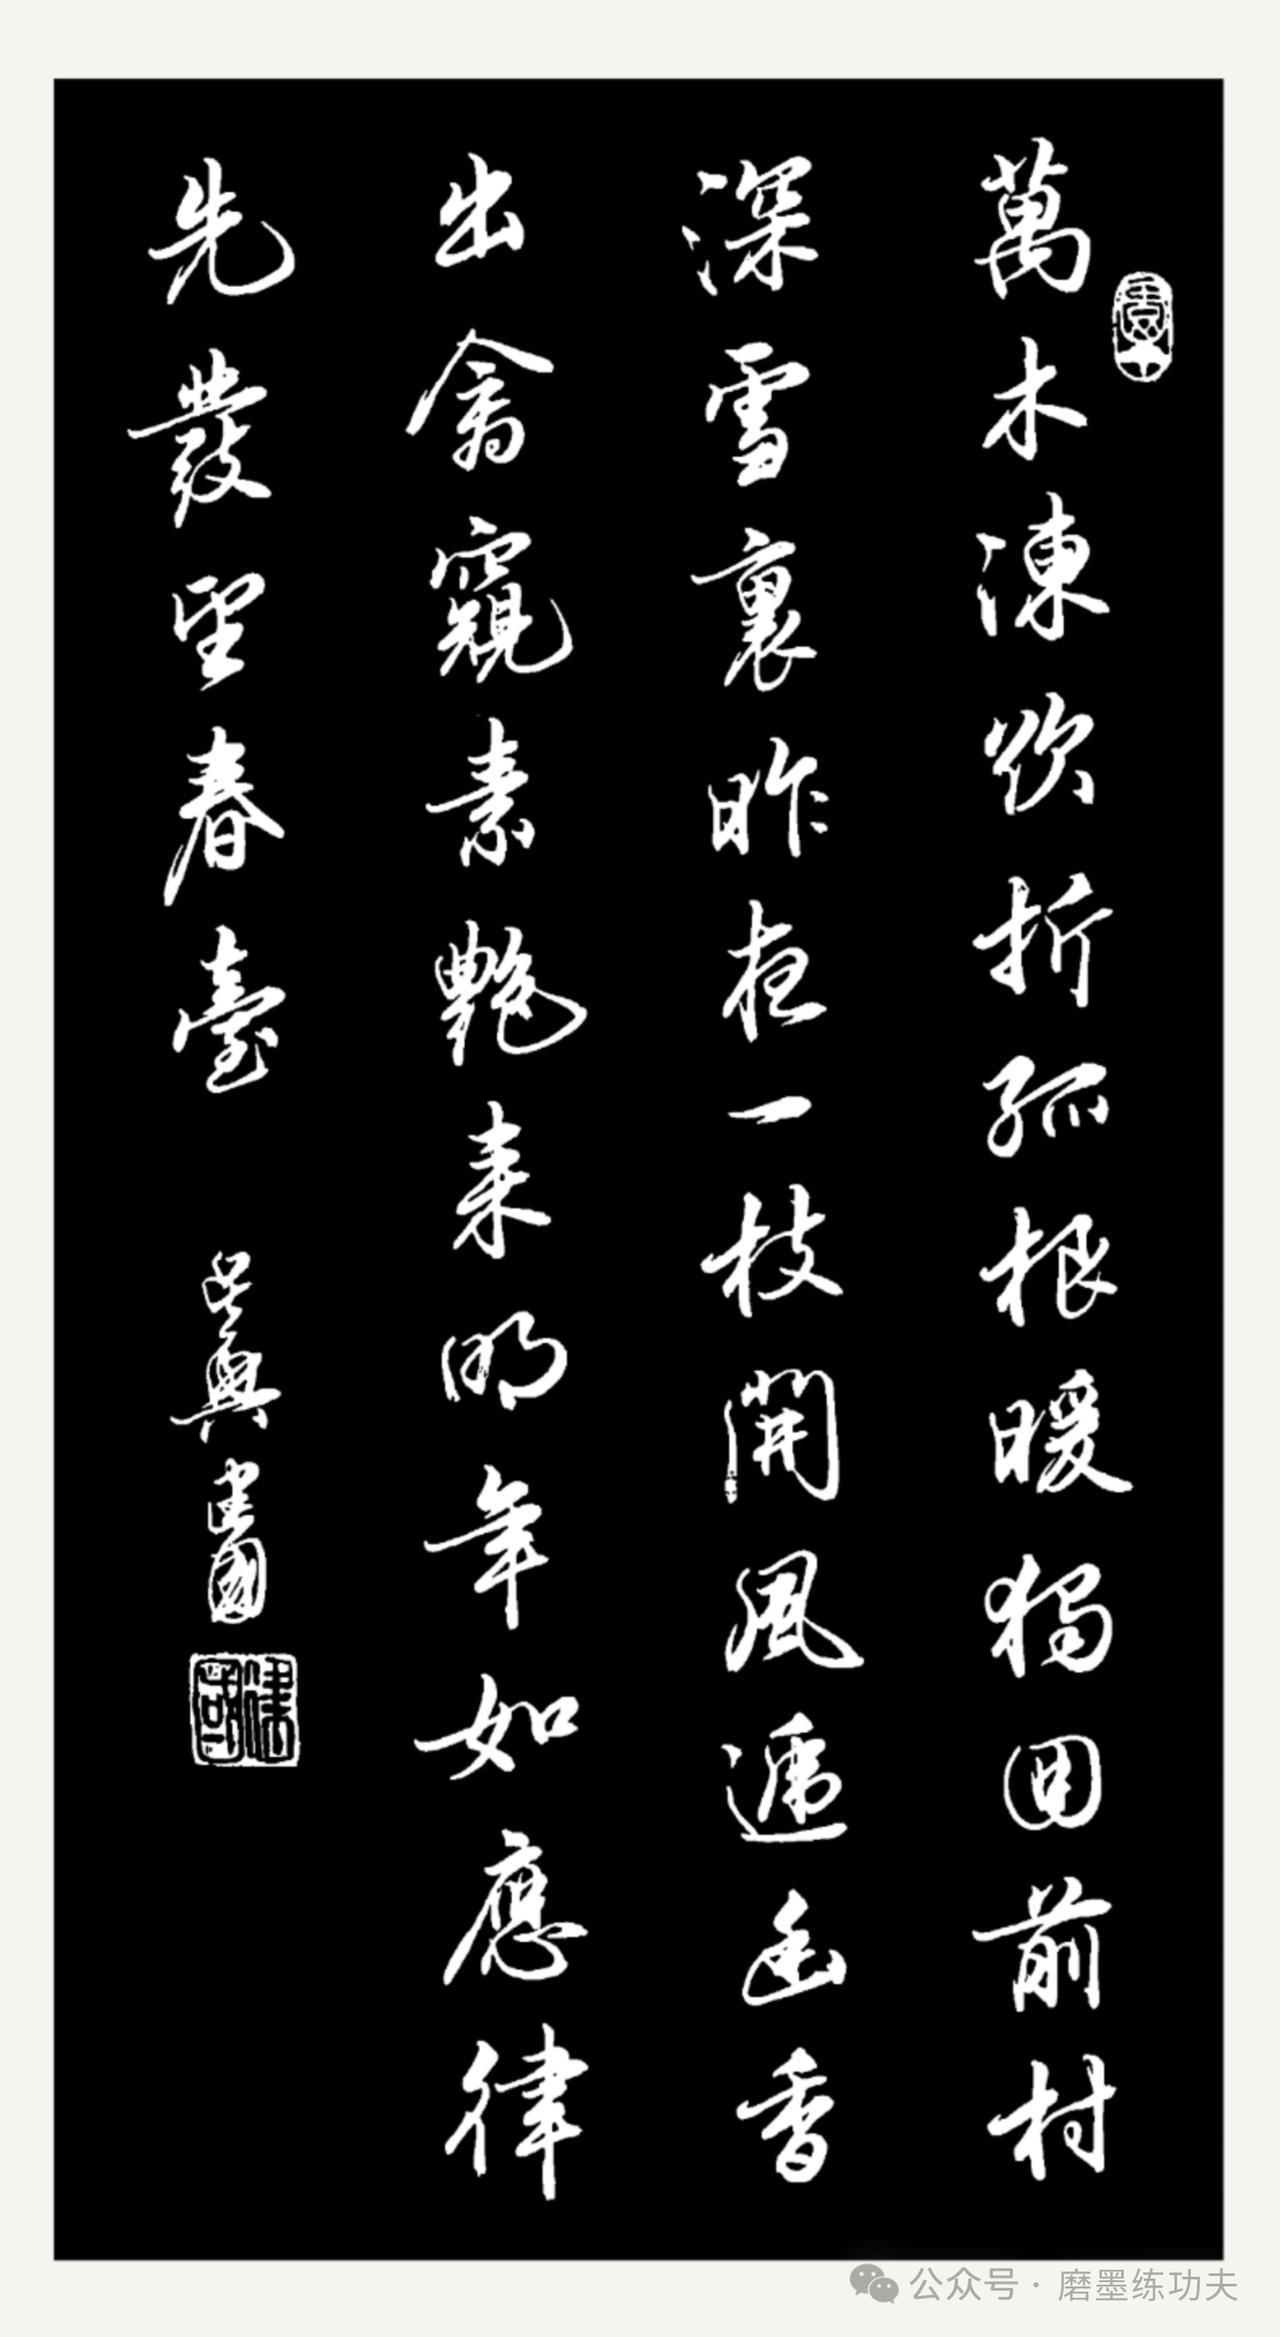 萬木凍欲折孤根暖獨回前村
深雪裏昨夜一枝開風遞幽香
出禽窺素艷來明年如應律
先發望春臺
吳興書國
公众号·磨墨练功夫